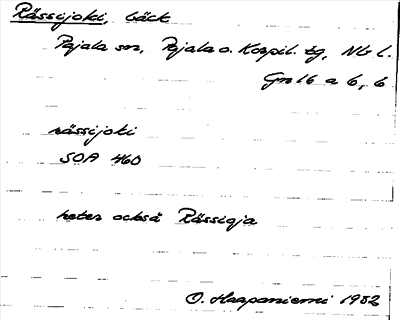 Rässijoki, bäck
Pajala sn, Pajala o. Korpil. tg, Nb l.
Gn 16 a b, b
rässijoki
SOA 460
heter också Rässioja
O. Haapaniemi 1932